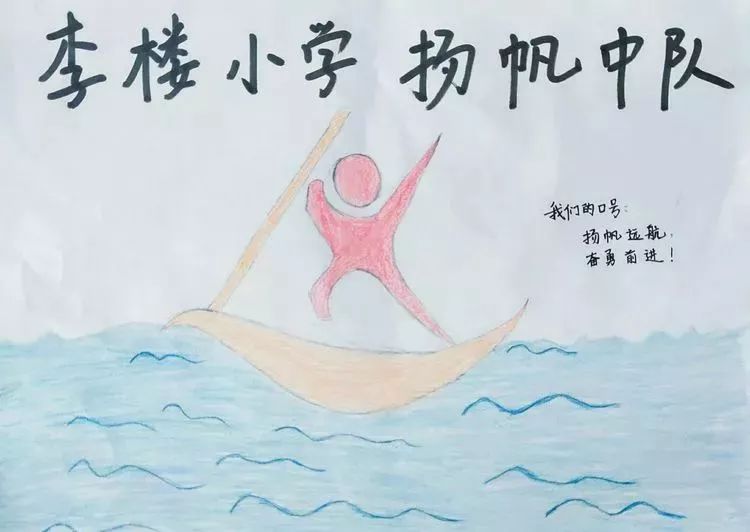 李楼小学 扬帆中队
我们的口号：
扬帆远航，
奋勇前进！